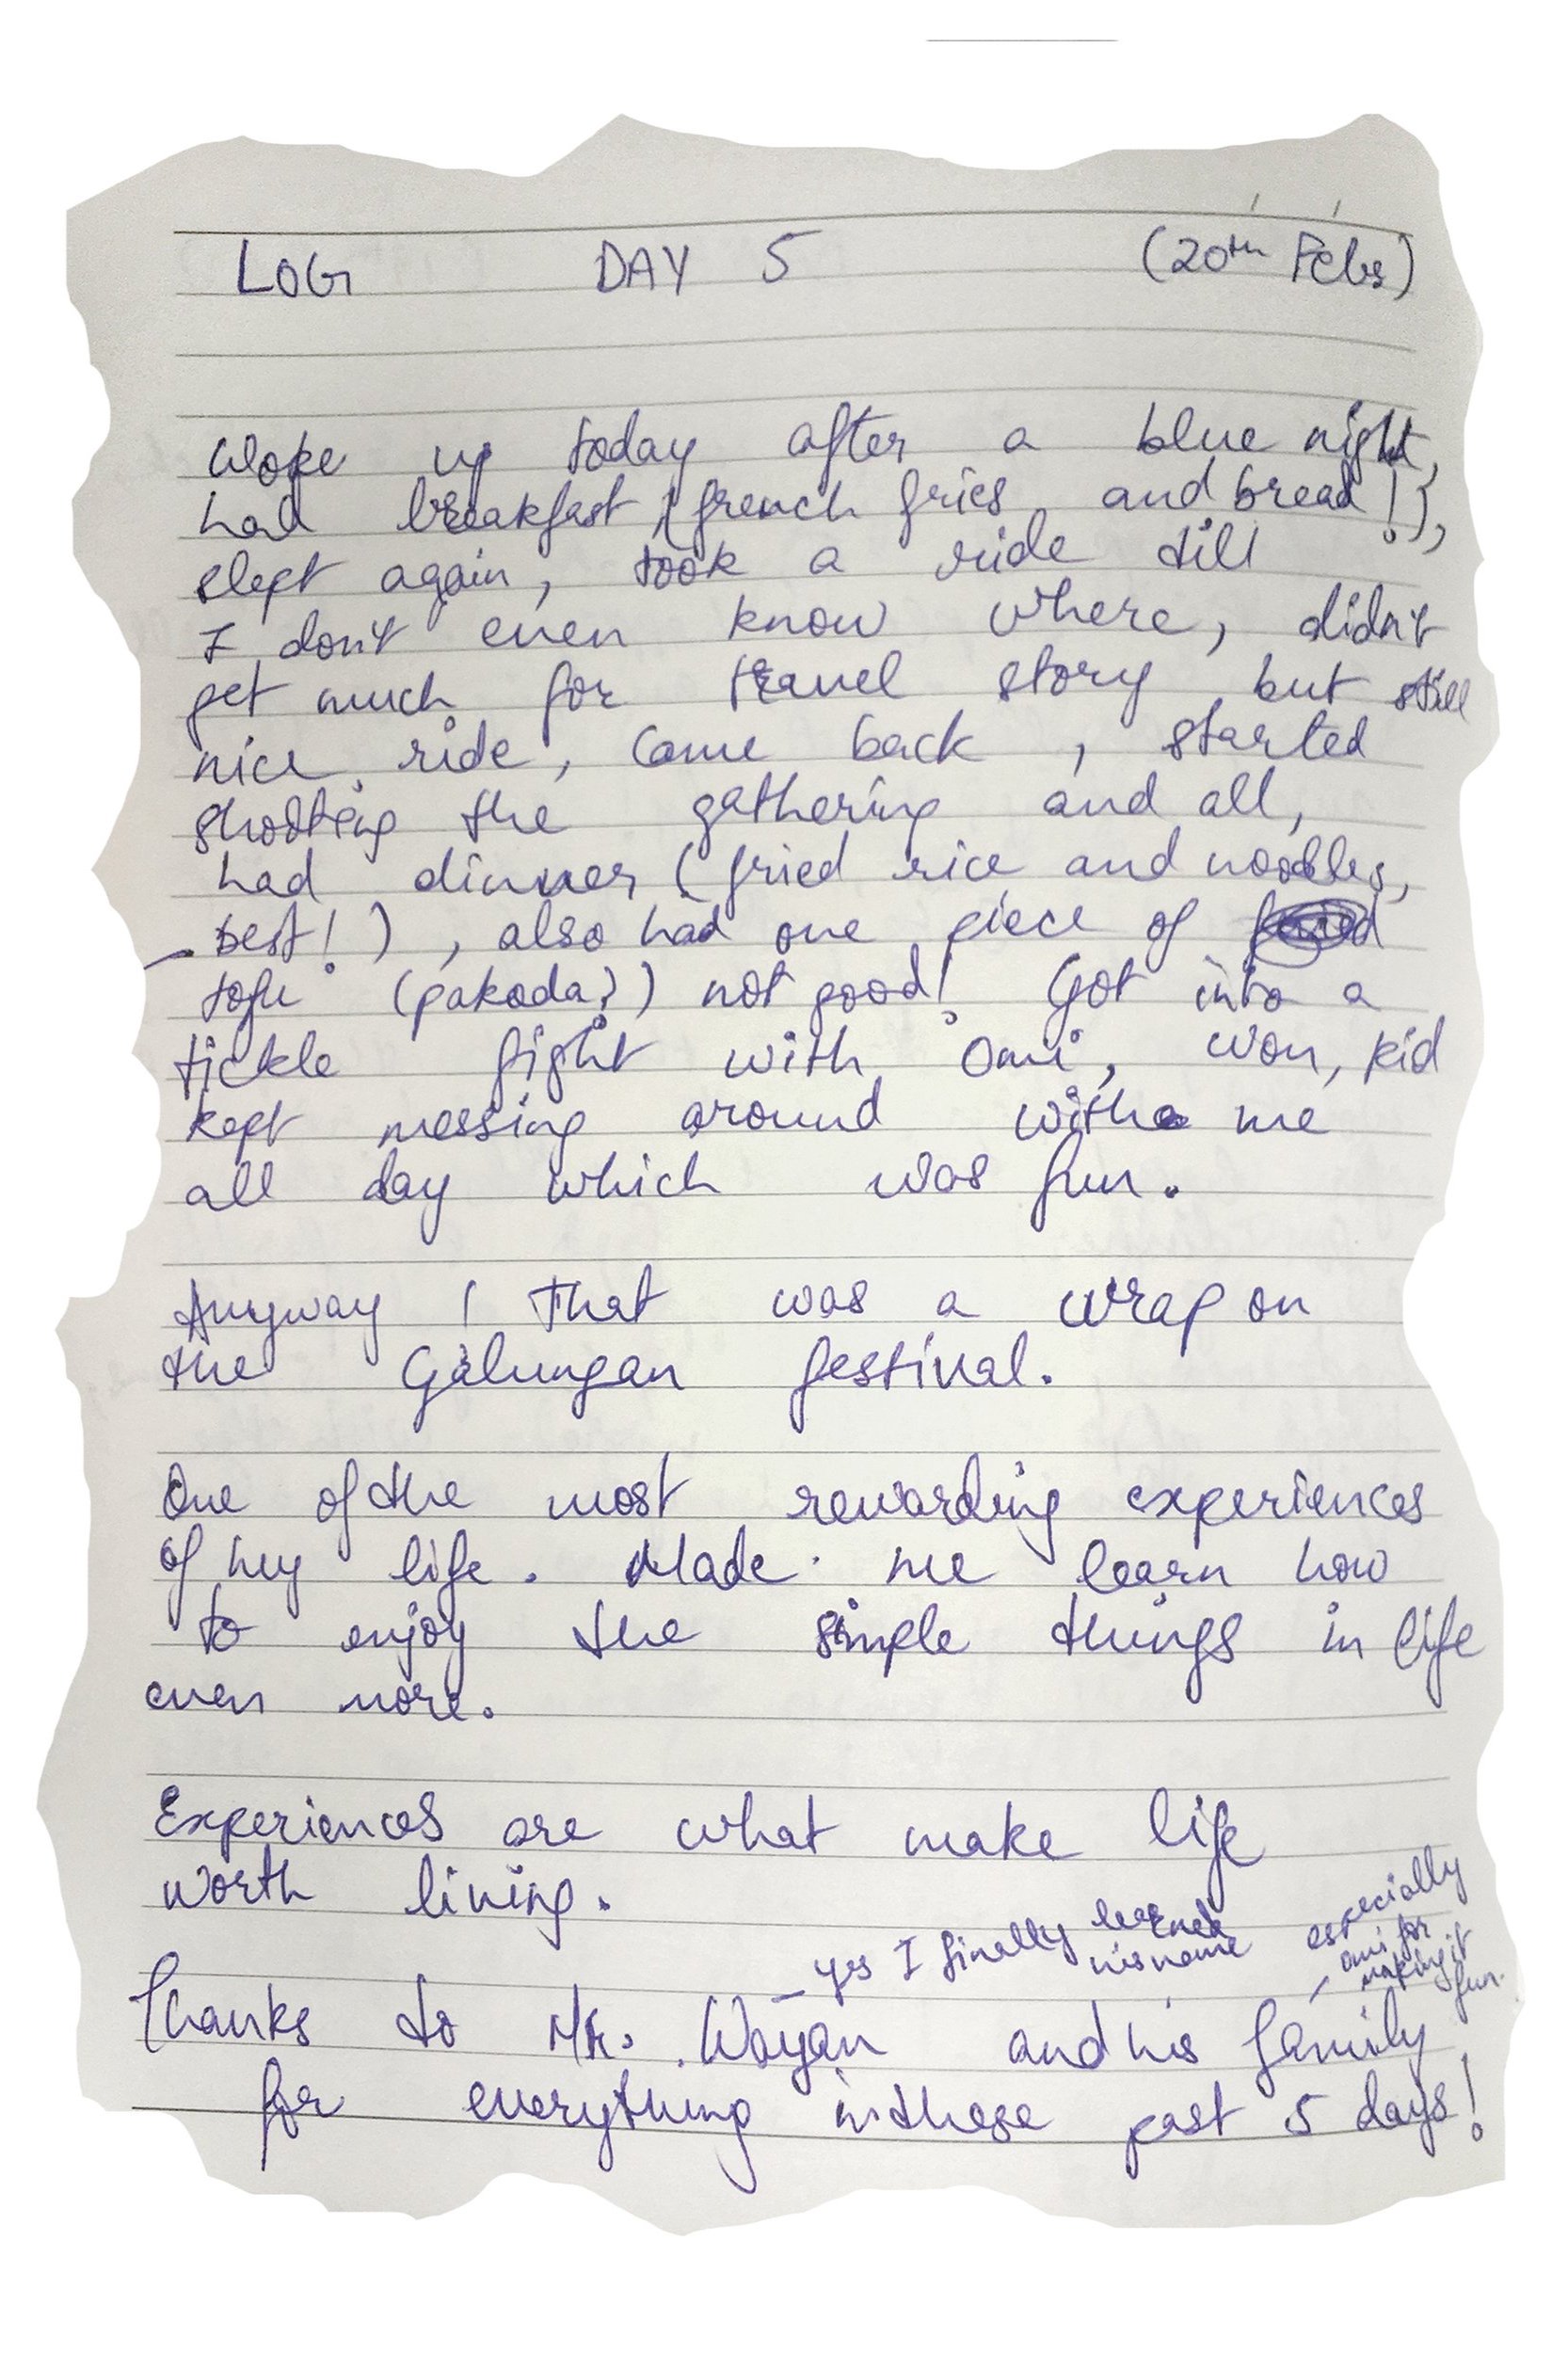 LOG DAY 5 (20th Feb)
Woke up today after a blue night,
had breakfast (french fries and bread!),
slept again, took a ride till
I don't even know where, didn't
get much for travel story but still
nice ride, came back, started
shooting the gathering and all,
had dinner (fried rice and noodles,
best!), also had one piece of
tofu (pakoda?) not good! Got into a
tickle fight with Omi, won, kid
kept messing around with me
all day which was fun.
Anyway! That was a wrap on
the Galungan festival.
One of the most rewarding experiences
of my life. Made me learn how
to enjoy the simple things in life
even more.
Experiences are what make life
worth living.
yes I finally learned
his name
especially
omi for
making it
fun.
Thanks to Mr. Wayan and his family
for everything in these past 5 days!